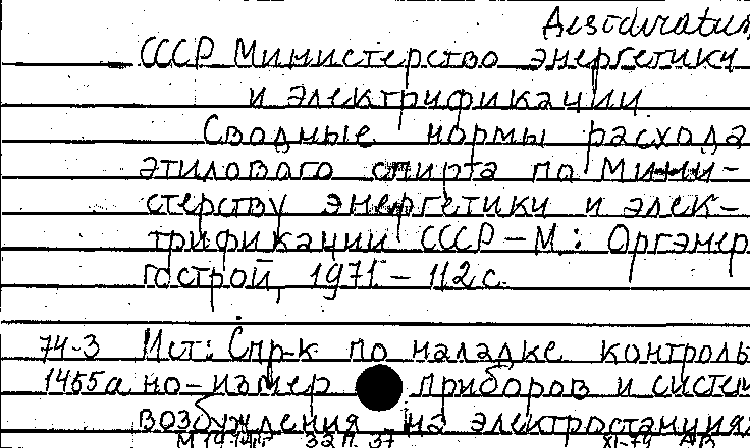 Desideratum
СССР Министерство энергетики
и электрификации.
Сводные нормы расхода
этилового спирта по Мини-
стерству энергетики и элек-
трификации СССР – М.: Оргэнер
гострой, 1971 – 112 с.
74-3 Ист: Спр-к по наладке контроль
1455а но-измер приборов и систем
возбуждения на электростанциях
М 1974 с. 37 XI-74